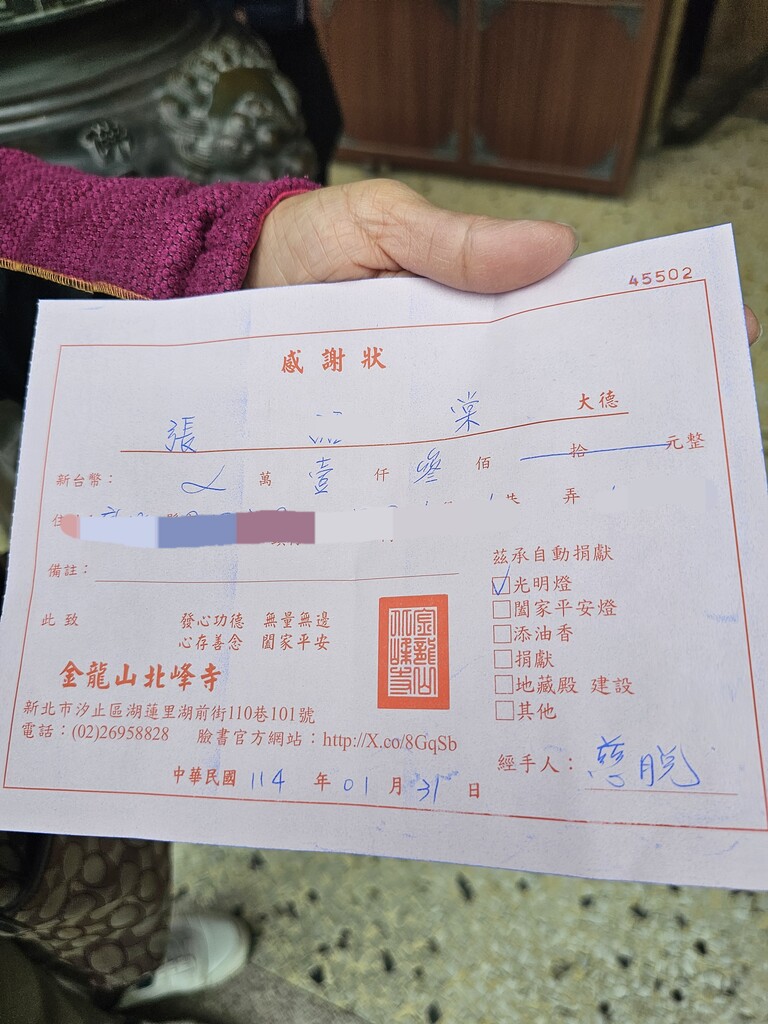 45502
感謝狀
張 棠 大德
新台幣： 萬 壹 仟 參 佰 拾 元整
弄
備註：
茲承自動捐獻
光明燈
闔家平安燈
添油香
捐獻
地藏殿 建設
其他
此致
發心功德 無量無邊
心存善念 闔家平安
金龍山北峰寺
金龍山北峰寺
新北市汐止區湖蓮里湖前街110巷101號
電話：(02)26958828 臉書官方網站：http://X.co/8GqSb
經手人：慈脫
中華民國 114 年 01 月 31 日